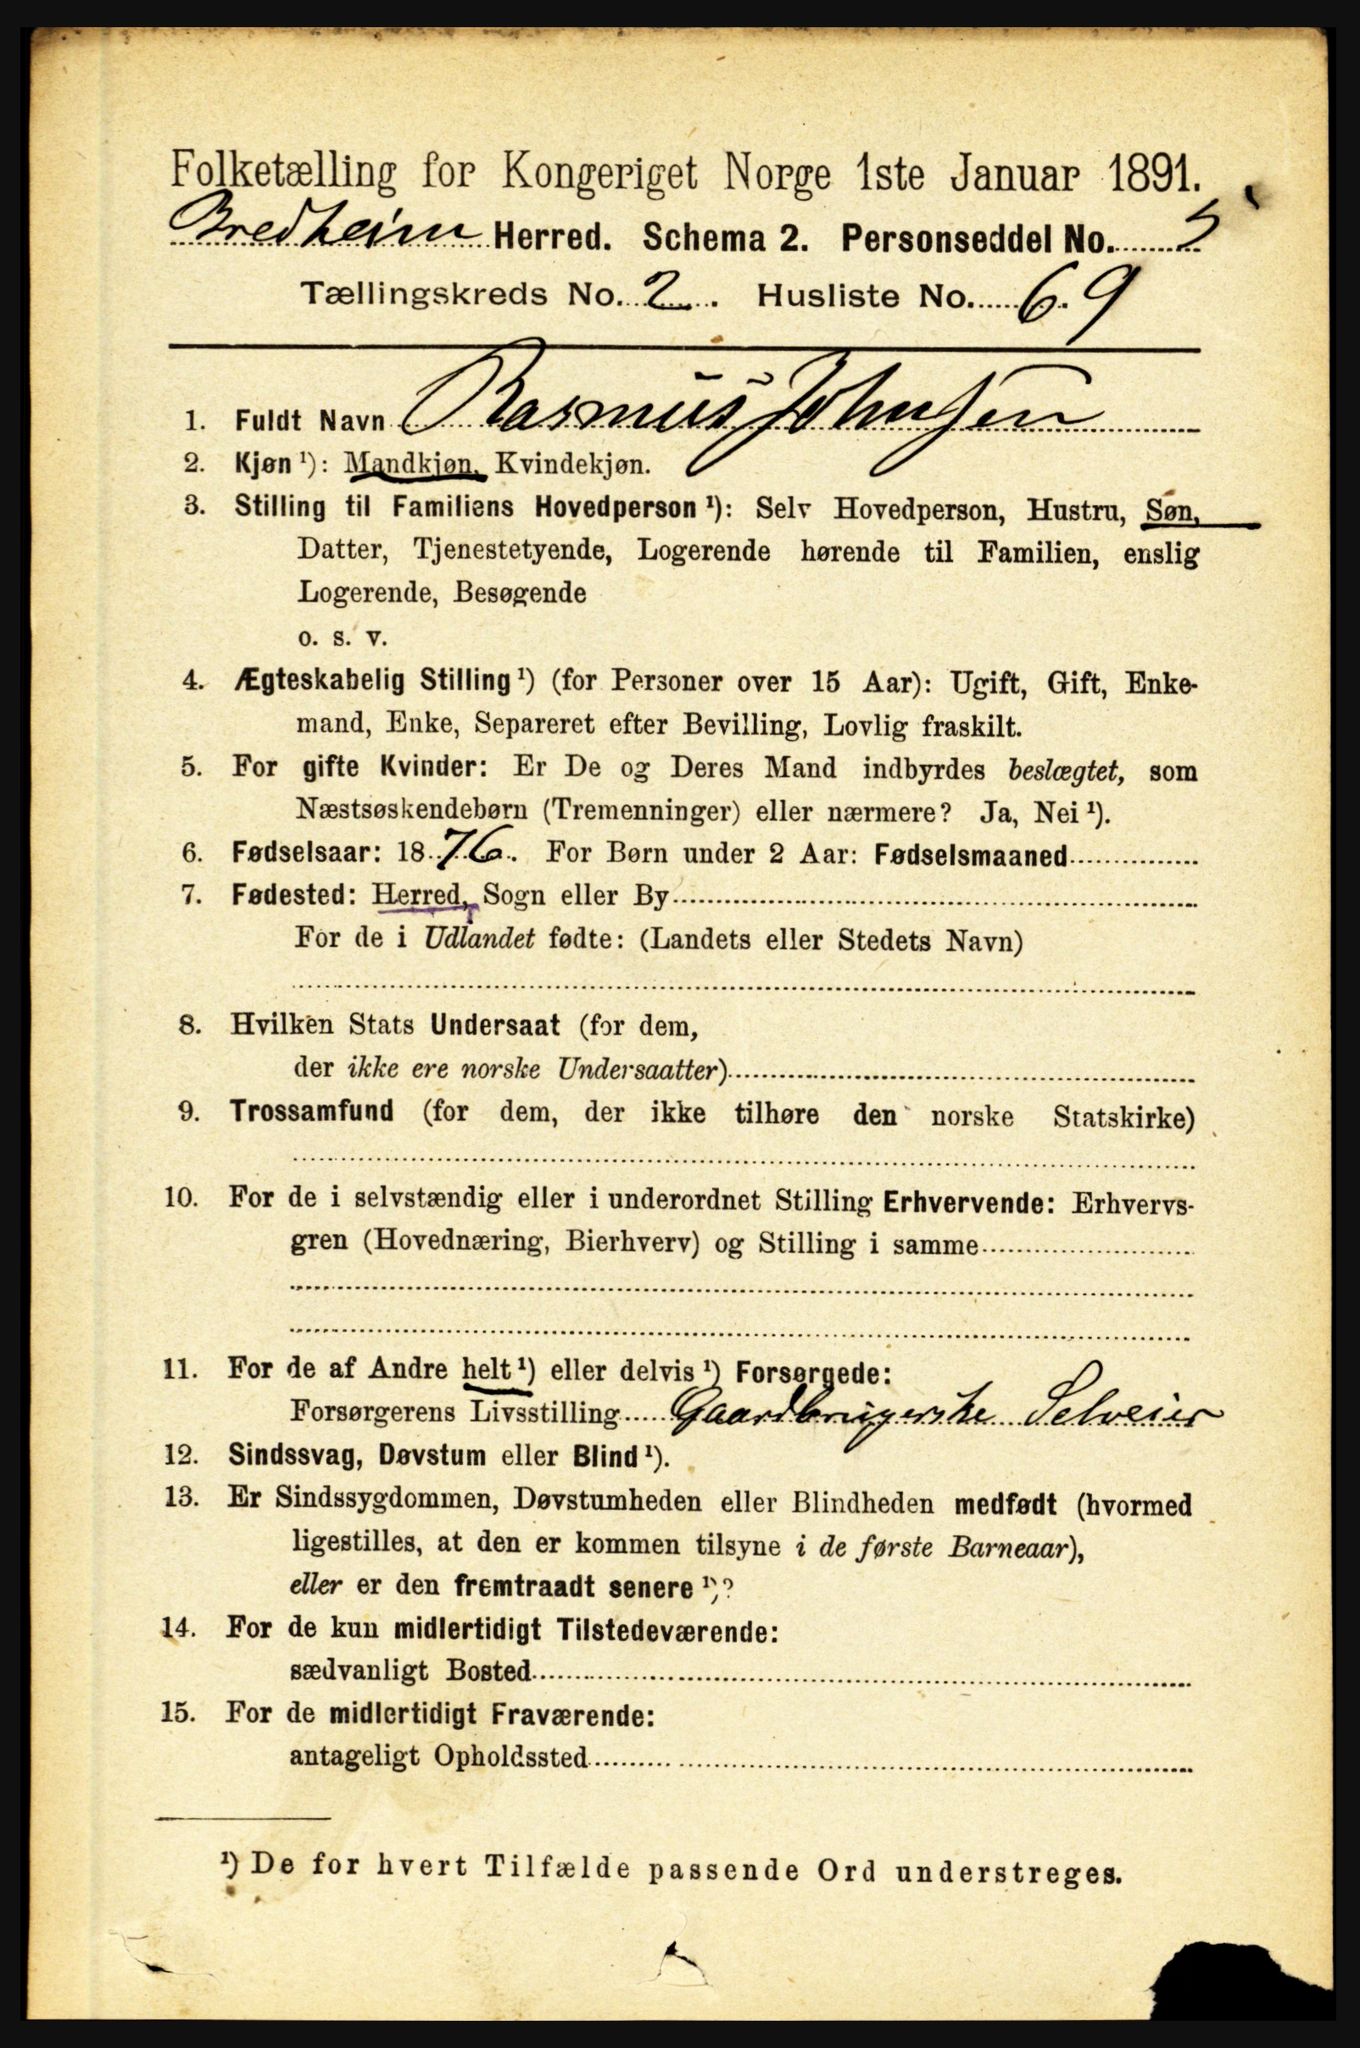 Folketælling for Kongeriget Norge 1ste Januar 1891.
Bredheim Herred. Schema 2. Personseddel No. 5
Tællingskreds No. 2. Husliste No. 69
1. Fuldt Navn Rasmus Johnsen
2. Kjøn ¹): Mandkjøn, Kvindekjøn.
3. Stilling til Familiens Hovedperson ¹): Selv Hovedperson, Hustru, Søn,
Datter, Tjenestetyende, Logerende hørende til Familien, enslig
Logerende, Besøgende
o. s. v.
4. Ægteskabelig Stilling ¹) (for Personer over 15 Aar): Ugift, Gift, Enke-
mand, Enke, Separeret efter Bevilling, Lovlig fraskilt.
5. For gifte Kvinder: Er De og Deres Mand indbyrdes beslægtet, som
Næstsøskendebørn (Tremenninger) eller nærmere? Ja, Nei ¹).
6. Fødselsaar: 1876. For Børn under 2 Aar: Fødselsmaaned
7. Fødested: Herred, Sogn eller By
For de i Udlandet fødte: (Landets eller Stedets Navn)
8. Hvilken Stats Undersaat (for dem,
der ikke ere norske Undersaatter)
9. Trossamfund (for dem, der ikke tilhøre den norske Statskirke)
10. For de i selvstændig eller i underordnet Stilling Erhvervende: Erhvervs-
gren (Hovednæring, Bierhverv) og Stilling i samme
11. For de af Andre helt ¹) eller delvis ¹) Forsørgede:
Forsørgerens Livsstilling Gaardbrugerske Selveier
12. Sindssvag, Døvstum eller Blind ¹).
13. Er Sindssygdommen, Døvstumheden eller Blindheden medfødt (hvormed
ligestilles, at den er kommen tilsyne i de første Barneaar),
eller er den fremtraadt senere ¹)?
14. For de kun midlertidigt Tilstedeværende:
sædvanligt Bosted
15. For de midlertidigt Fraværende:
antageligt Opholdssted
¹) De for hvert Tilfælde passende Ord understreges.